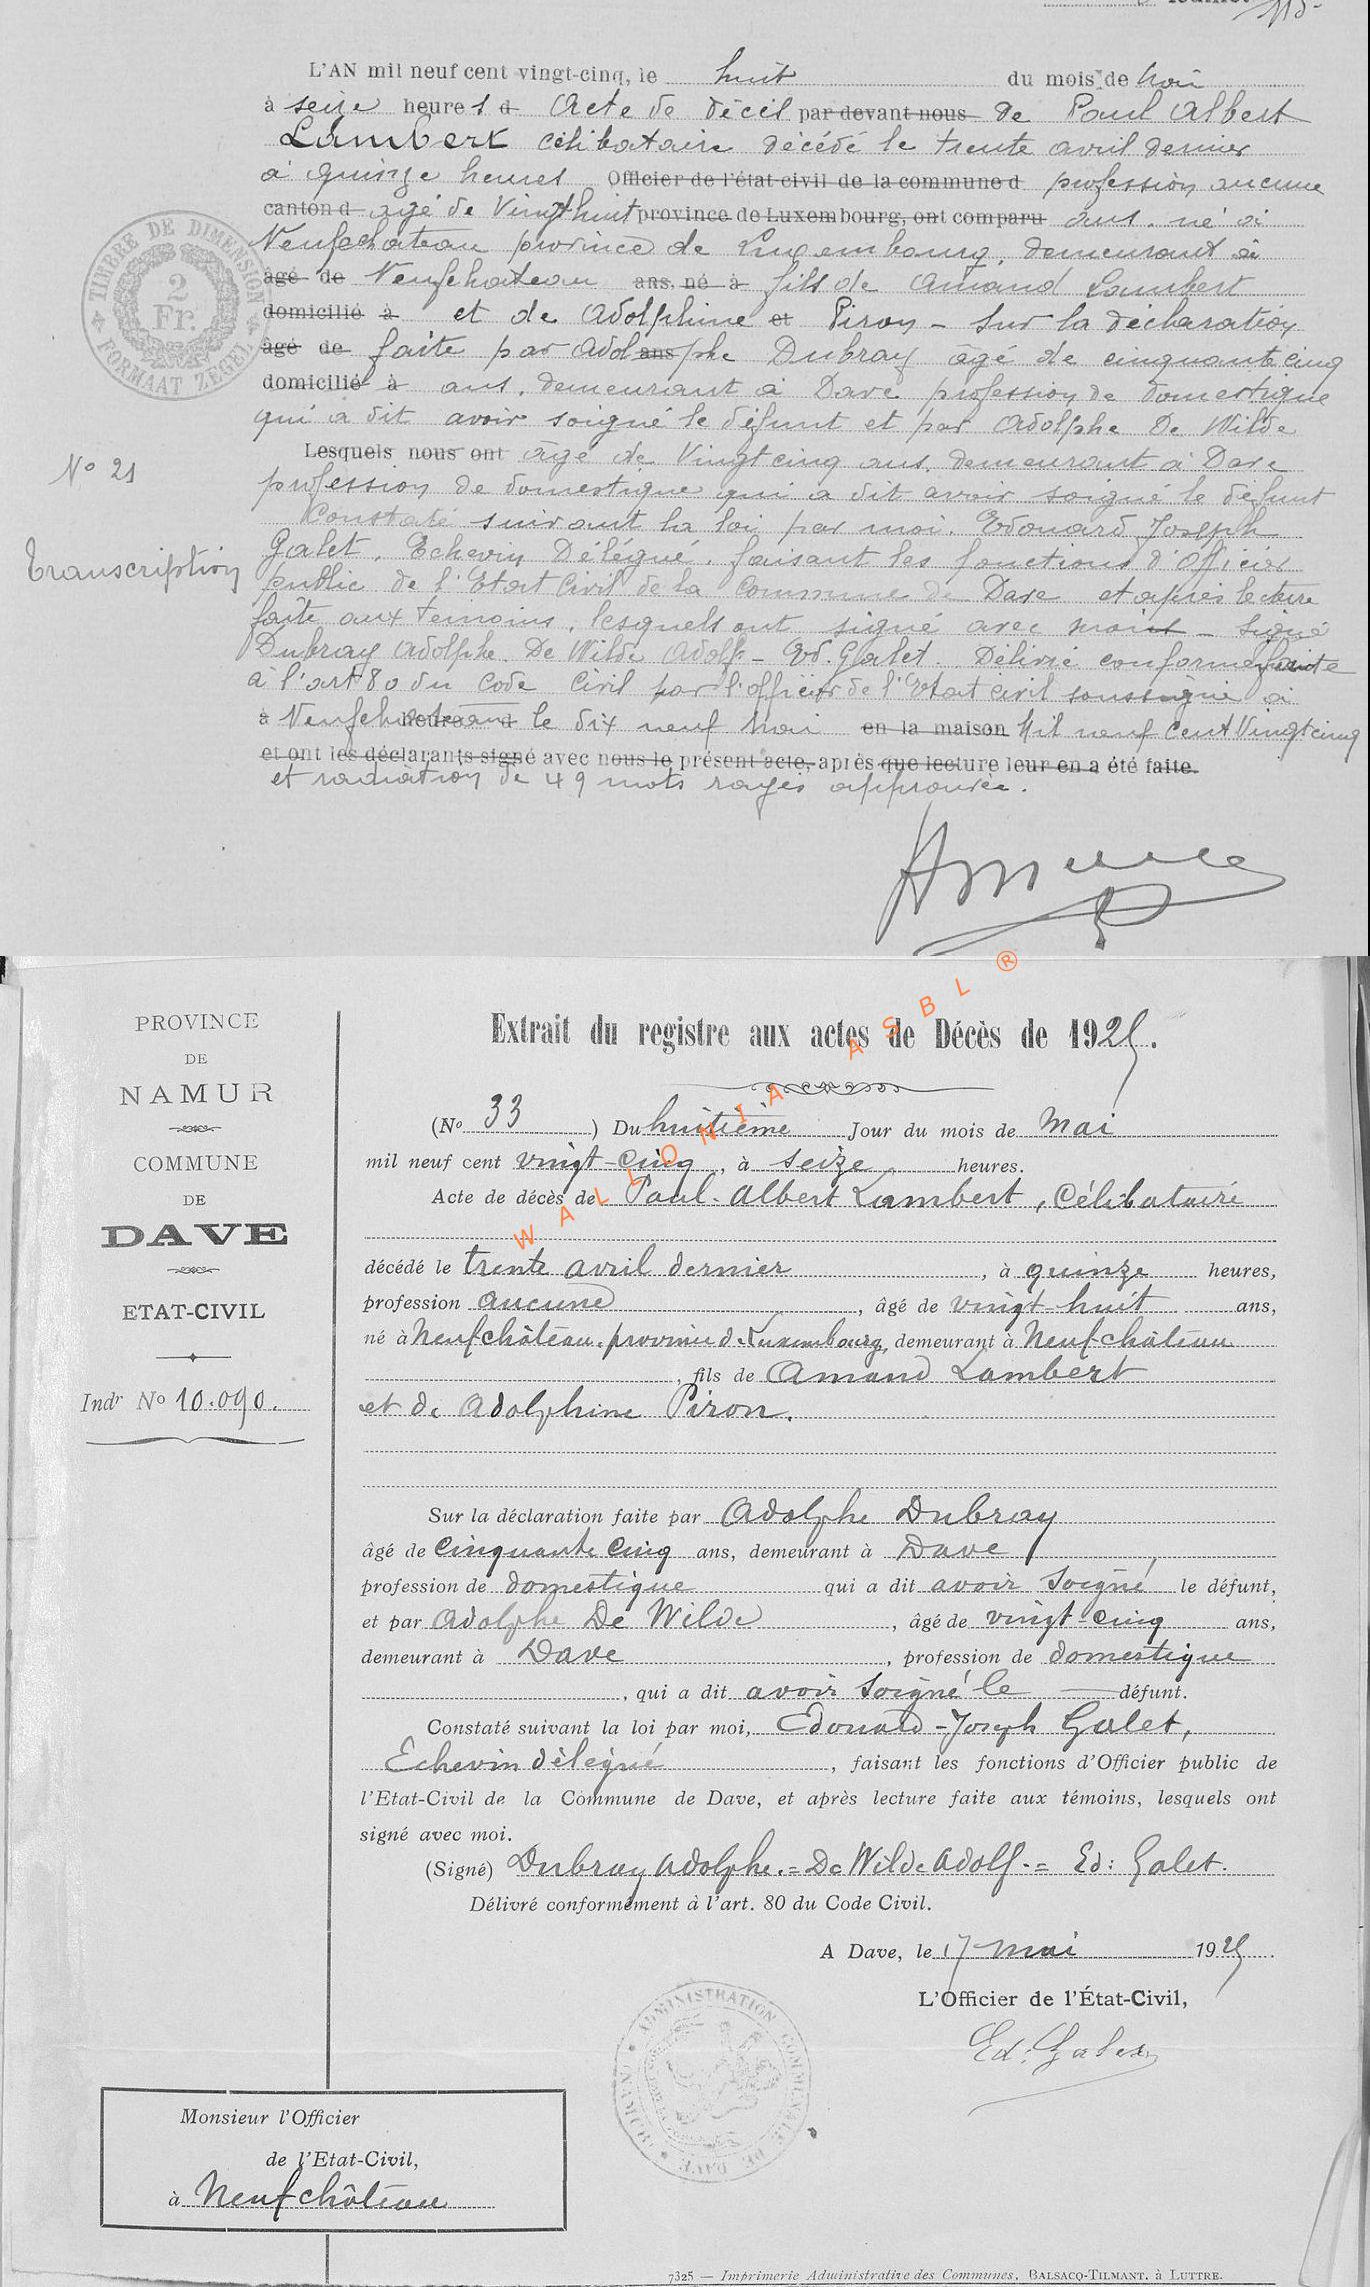 feuillet 115
L'AN mil neuf cent vingt-cinq, le huit du mois de Mai
à seize heures d Acte de décès par devant nous de Paul Albert
Lambert célibataire décédé le trente avril dernier
à quinze heures Officier de l'état civil de la commune d profession aucune
canton d agé de Vingt huit province de Luxembourg, ont comparu ans. né à
Neufchateau province de Luxembourg, demeurant à
âgé de Neufchateau ans, né à fils de Amand Lambert
domicilié à et de Adolphine et Piron - Sur la déclaration
âgé de faite par Adol ans phe Dubray âgé de cinquante cinq
domicilié à ans, demeurant à Dave profession de domestique
qui a dit avoir soigné le défunt et par Adolphe De Wilde
Lesquels nous ont âgé de Vingt cinq ans, demeurant à Dave
N° 21
profession de domestique qui a dit avoir soigné le défunt
Constaté suivant la loi par moi. Edouard Joseph
Galet. Echevin Délégué. faisant les fonctions d'Officier
Transcription
public de l'Etat Civil de la Commune de Dave et après lecture
faite aux témoins, lesquels ont signé avec moi - Signé
Dubray Adolphe. De Wilde Adolf - Ed. Galet. Délivré conformément
à l'art 80 du Code Civil par l'officier de l'Etat civil soussigné à
à Neufchateau heures d le dix neuf Mai en la maison Mil neuf Cent Vingt cinq
et ont les déclarants signé avec nous le présent acte, après que lecture leur en a été faite.
et radiation de 49 mots rayés approuvée.
TIMBRE DE DIMENSION
2
Fr.
FORMAAT ZEGEL
WALLONIA ASBL ®
PROVINCE
DE
NAMUR
COMMUNE
DE
DAVE
ETAT-CIVIL
Indr No 10.090.
Extrait du registre aux actes de Décès de 1925.
(No 33 ) Du huitième Jour du mois de Mai
mil neuf cent vingt-cinq, à seize heures.
Acte de décès de Paul-Albert Lambert, Célibataire
décédé le trente avril dernier, à quinze heures,
profession aucune, âgé de vingt-huit ans,
né à Neufchâteau, province de Luxembourg, demeurant à Neufchâteau
, fils de Amand Lambert
et de Adolphine Piron.
Sur la déclaration faite par Adolphe Dubray
âgé de Cinquante Cinq ans, demeurant à Dave
profession de domestique qui a dit avoir Soigné le défunt,
et par Adolphe De Wilde, âgé de vingt-cinq ans,
demeurant à Dave, profession de domestique
, qui a dit avoir Soigné le défunt.
Constaté suivant la loi par moi, Edouard-Joseph Galet,
Echevin délégué, faisant les fonctions d'Officier public de
l'Etat-Civil de la Commune de Dave, et après lecture faite aux témoins, lesquels ont
signé avec moi.
(Signé) Dubray Adolphe. = De Wilde Adolf. = Ed: Galet.
Délivré conformément à l'art. 80 du Code Civil.
A Dave, le 17 mai 1925
L'Officier de l'État-Civil,
Ed: Galet
ADMINISTRATION COMMUNALE DE DAVE
Monsieur l'Officier
de l'Etat-Civil,
à Neufchâteau
7325 — Imprimerie Administrative des Communes, BALSACQ-TILMANT, à LUTTRE.